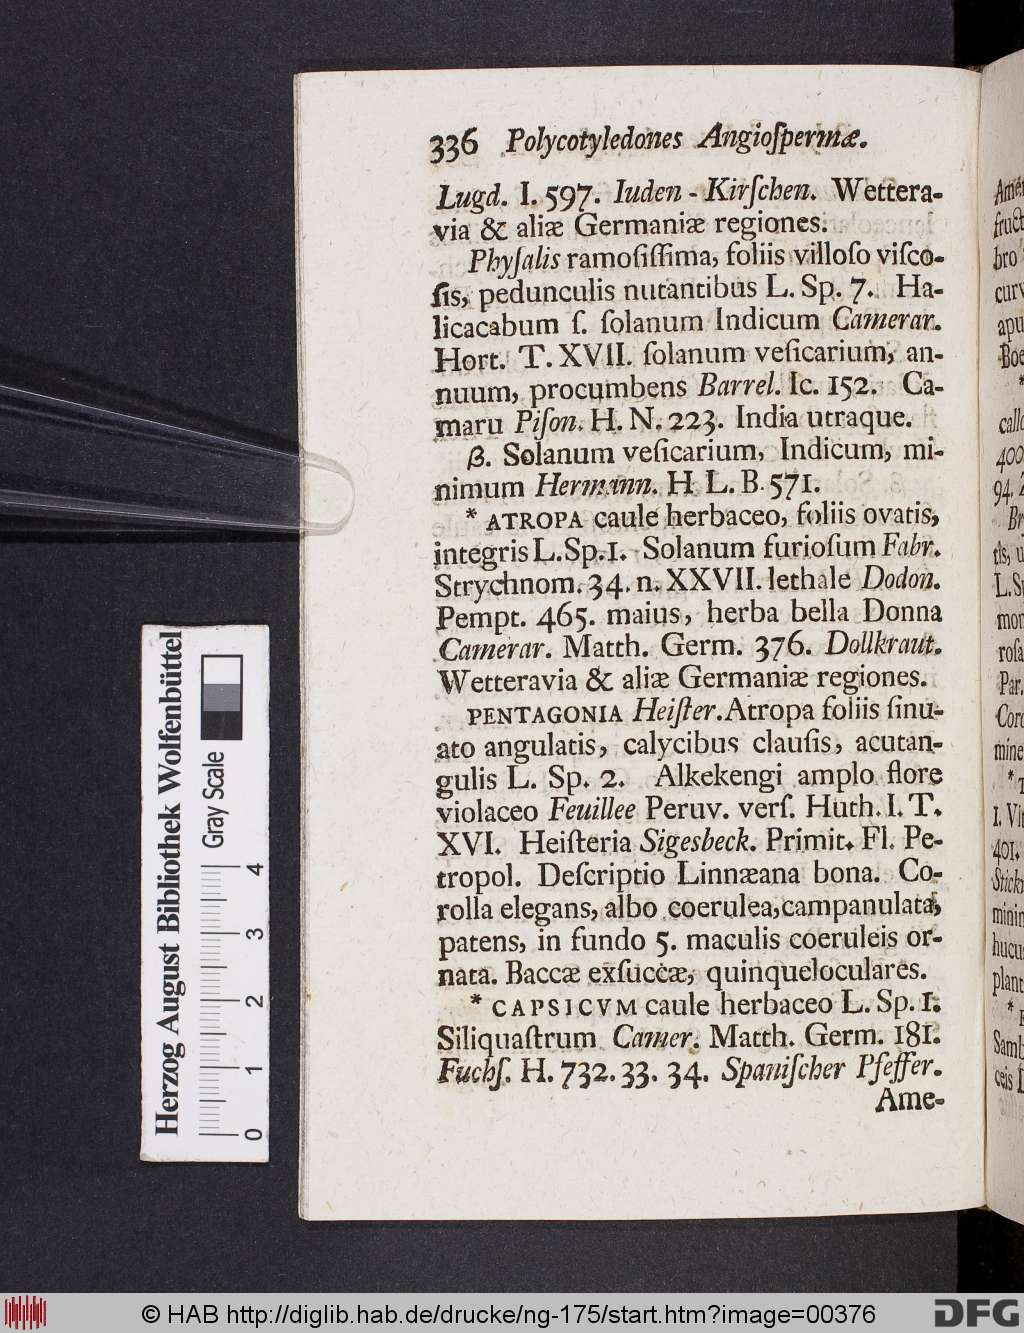 336 Polycotyledones Angioſpermæ.
Lugd. I. 597. Iuden-Kirſchen. Wettera-
via & aliæ Germaniæ regiones.
Phyſalis ramoſiſſima, foliis villoſo viſco-
ſis, pedunculis nutantibus L. Sp. 7. Ha-
licacabum ſ. ſolanum Indicum Camerar.
Hort. T. XVII. ſolanum veſicarium, an-
nuum, procumbens Barrel. Ic. 152. Ca-
maru Piſon. H. N. 223. India utraque.
β. Solanum veſicarium, Indicum, mi-
nimum Hermann. H L. B. 571.
* ATROPA caule herbaceo, foliis ovatis,
integris L. Sp. 1. Solanum furioſum Fabr.
Strychnom. 34. n. XXVII. lethale Dodon.
Pempt. 465. maius, herba bella Donna
Camerar. Matth. Germ. 376. Dollkraut.
Wetteravia & aliæ Germaniæ regiones.
PENTAGONIA Heiſter. Atropa foliis ſinu-
ato angulatis, calycibus clauſis, acutan-
gulis L. Sp. 2. Alkekengi amplo flore
violaceo Feuillee Peruv. verſ. Huth. I. T.
XVI. Heiſteria Sigesbeck. Primit. Fl. Pe-
tropol. Deſcriptio Linnæana bona. Co-
rolla elegans, albo coerulea, campanulata,
patens, in fundo 5. maculis coeruleis or-
nata. Baccæ exſuccæ, quinqueloculares.
* CAPSICVM caule herbaceo L. Sp. 1.
Siliquaſtrum Camer. Matth. Germ. 181.
Fuchſ. H. 732. 33. 34. Spaniſcher Pfeffer.
Ame-
Herzog August Bibliothek Wolfenbüttel
Gray Scale
0 1 2 3 4
© HAB http://diglib.hab.de/drucke/ng-175/start.htm?image=00376
DFG